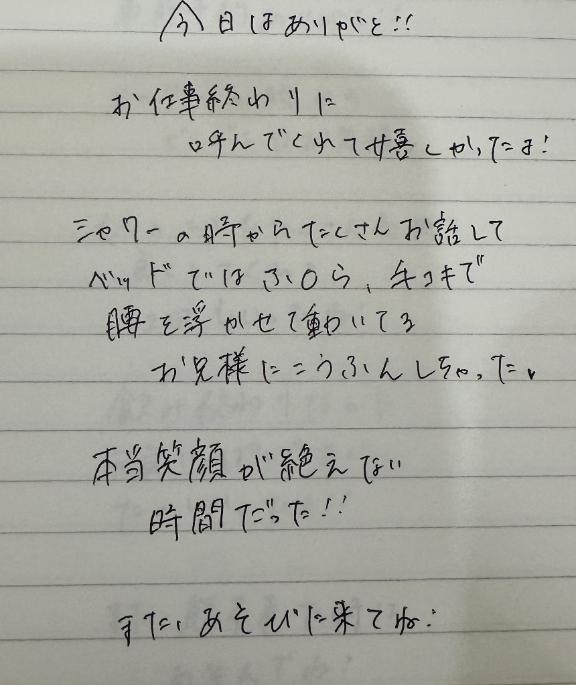 今日はありがと!!
お仕事終わりに
呼んでくれて嬉しかったよ!
シャワーの時からたくさんお話して
ベッドではふぇら、手コキで
腰を浮かせて動いてる
お兄様にこうふんしちゃった。
本当笑顔が絶えない
時間だった!!
また、あそびに来てね: